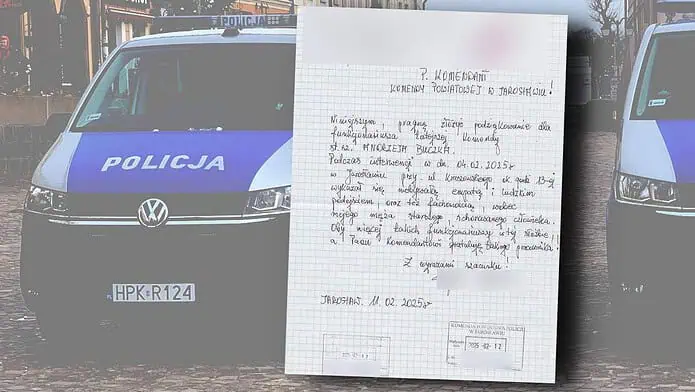 POLICJA
POLICJA
HPK R124
P. KOMENDANT
KOMENDY POWIATOWEJ W JAROSŁAWIU!
Niniejszym, pragnę złożyć podziękowanie dla
funkcjonariusza tutejszej Komendy
st. sż. ANDRZEJA BUCZKA.
Podczas interwencji w dn. 04.02.2025r
w Jarosławiu przy ul. Kraszewskiego ok. godz 13-ej
wykazał się niebywałą empatią i ludzkim
podejściem, oraz też fachowością, wobec
mojego męża starszego, schorowanego człowieka.
Oby więcej takich funkcjonariuszy w tej służbie!
a Panu Komendantowi gratuluję takiego pracownika!
Z wyrazami szacunku!
JAROSŁAW. 11.02.2025r
KOMENDA POWIATOWA POLICJI
W JAROSŁAWIU
2025-02-12